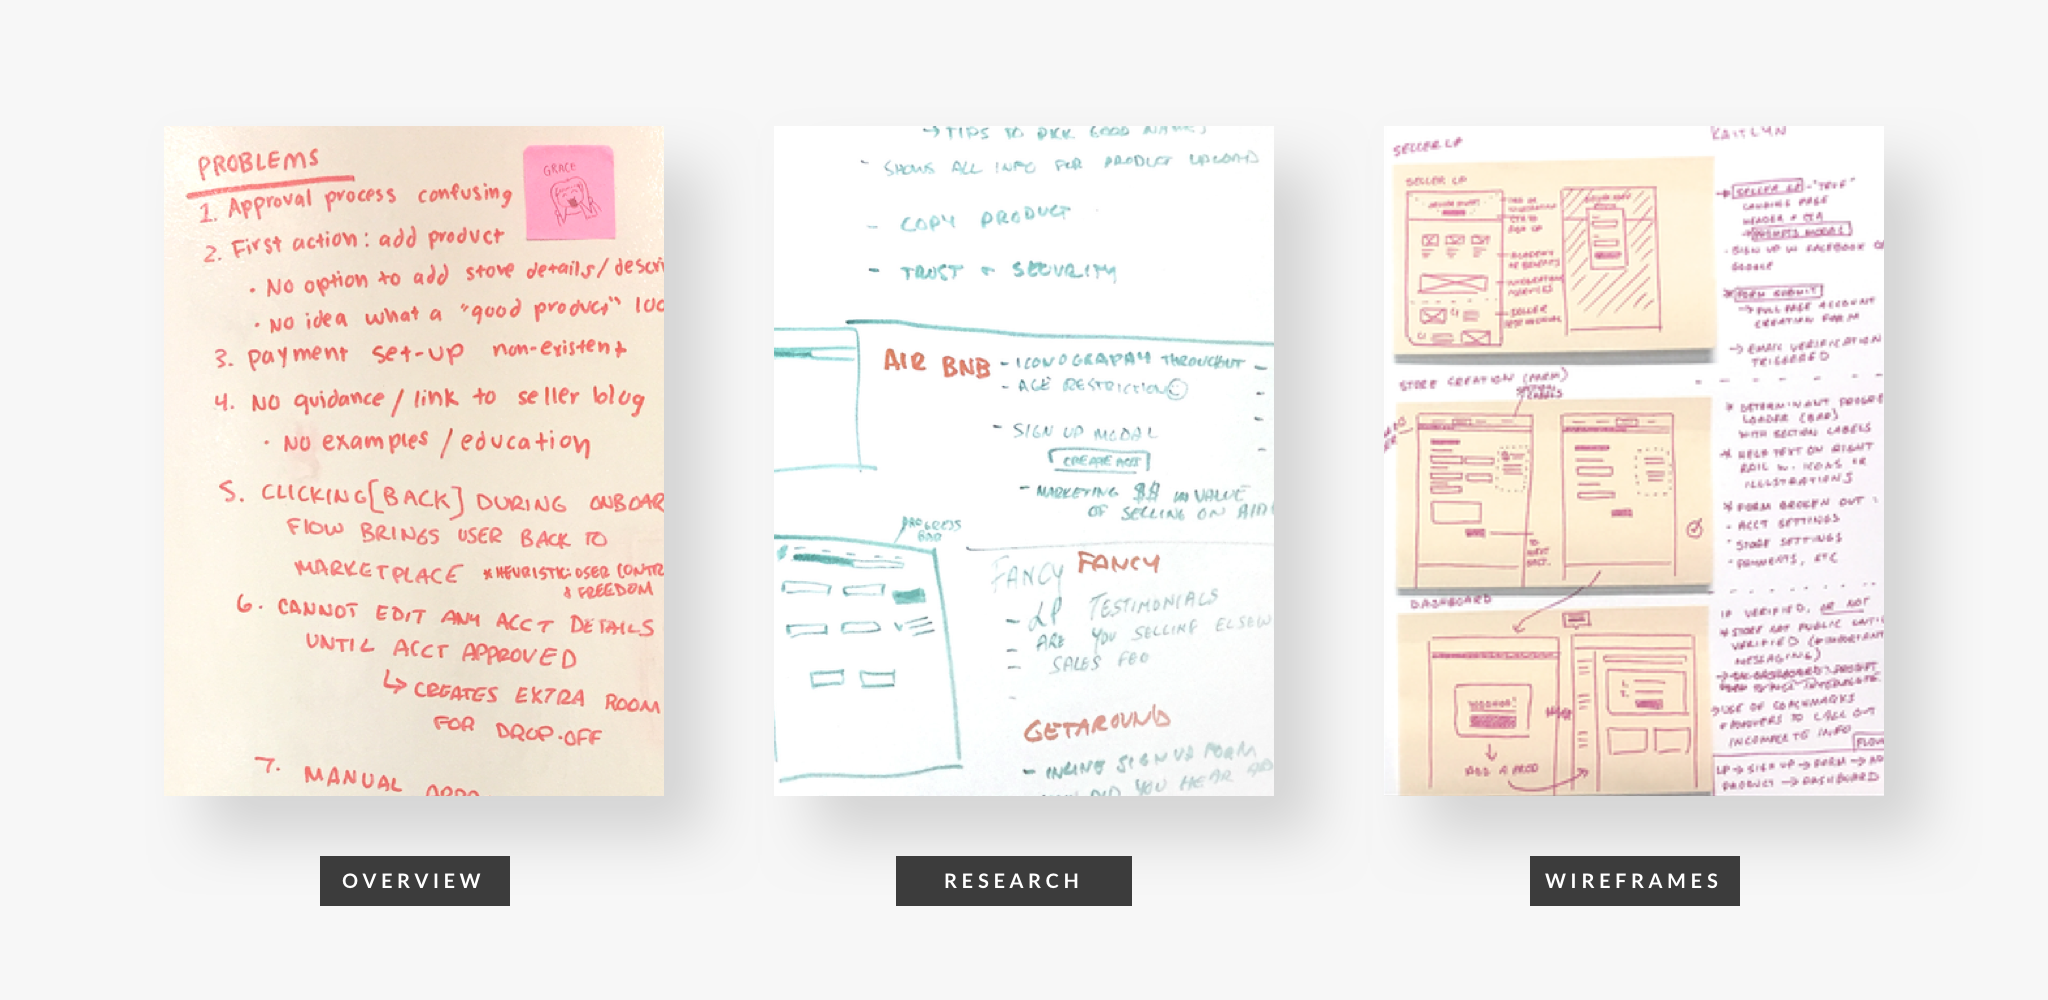 PROBLEMS
GRACE
1. Approval process confusing
2. First action: add product
• No option to add store details/descri
• No idea what a "good product" loo
3. payment set-up non-existent
4. No guidance/link to seller blog
• No examples/education
5. CLICKING [BACK] DURING ONBOAR
FLOW BRINGS USER BACK TO
MARKETPLACE *HEURISTIC: USER CONTR
& FREEDOM
6. CANNOT EDIT ANY ACCT DETAILS
UNTIL ACCT APPROVED
↳ CREATES EXTRA ROOM
FOR DROP-OFF
7. MANUAL APPR
OVERVIEW
→ TIPS TO PICK GOOD NAMES
- SHOWS ALL INFO FOR PRODUCT UPLOAD
- COPY PRODUCT
- TRUST + SECURITY
AIR BNB - ICONOGRAPHY THROUGHOUT
- AGE RESTRICTION
- SIGN UP MODAL
CREATE ACCT
- MARKETING $$ IN VALUE
OF SELLING ON AIR
PROGRESS
BAR
FANCY FANCY
- LP TESTIMONIALS
- ARE YOU SELLING ELSEW
- SALES FEO
GETAROUND
- INLINE SIGN UP FORM
DID YOU HEAR AB
RESEARCH
SELLER LP
KAITLYN
SELLER LP
→ SELLER LP - "TRUE"
LANDING PAGE
HEADER + CTA
→ PROMPTS MODAL
• SIGN UP W FACEBOOK O
GOOGLE
* FORM SUBMIT
→ FULL PAGE ACCOUNT
CREATION FORM
→ EMAIL VERIFICATION
TRIGGERED
STORE CREATION (FORM)
SECTION
LABELS
* DETERMINANT PROGRE
LOADER (BAR)
WITH SECTION LABELS
* HELP TEXT ON RIGHT
RAIL W. ICONS OR
ILLUSTRATIONS
* FORM BROKEN OUT:
- ACCT SETTINGS
- STORE SETTINGS
- PAYMENTS, ETC
TO
NEXT
SECT.
DASHBOARD
IF VERIFIED, OR NOT
* STORE NOT PUBLIC UNTIL
VERIFIED (*IMPORTANT
MESSAGING)
USE OF COACHMARKS
TO CALL OUT
INCOMPLETE INFO
HOORAY!
ADD A PROD
FLOW
LP → SIGN UP → FORM → AD
PRODUCT → DASHBOARD
WIREFRAMES